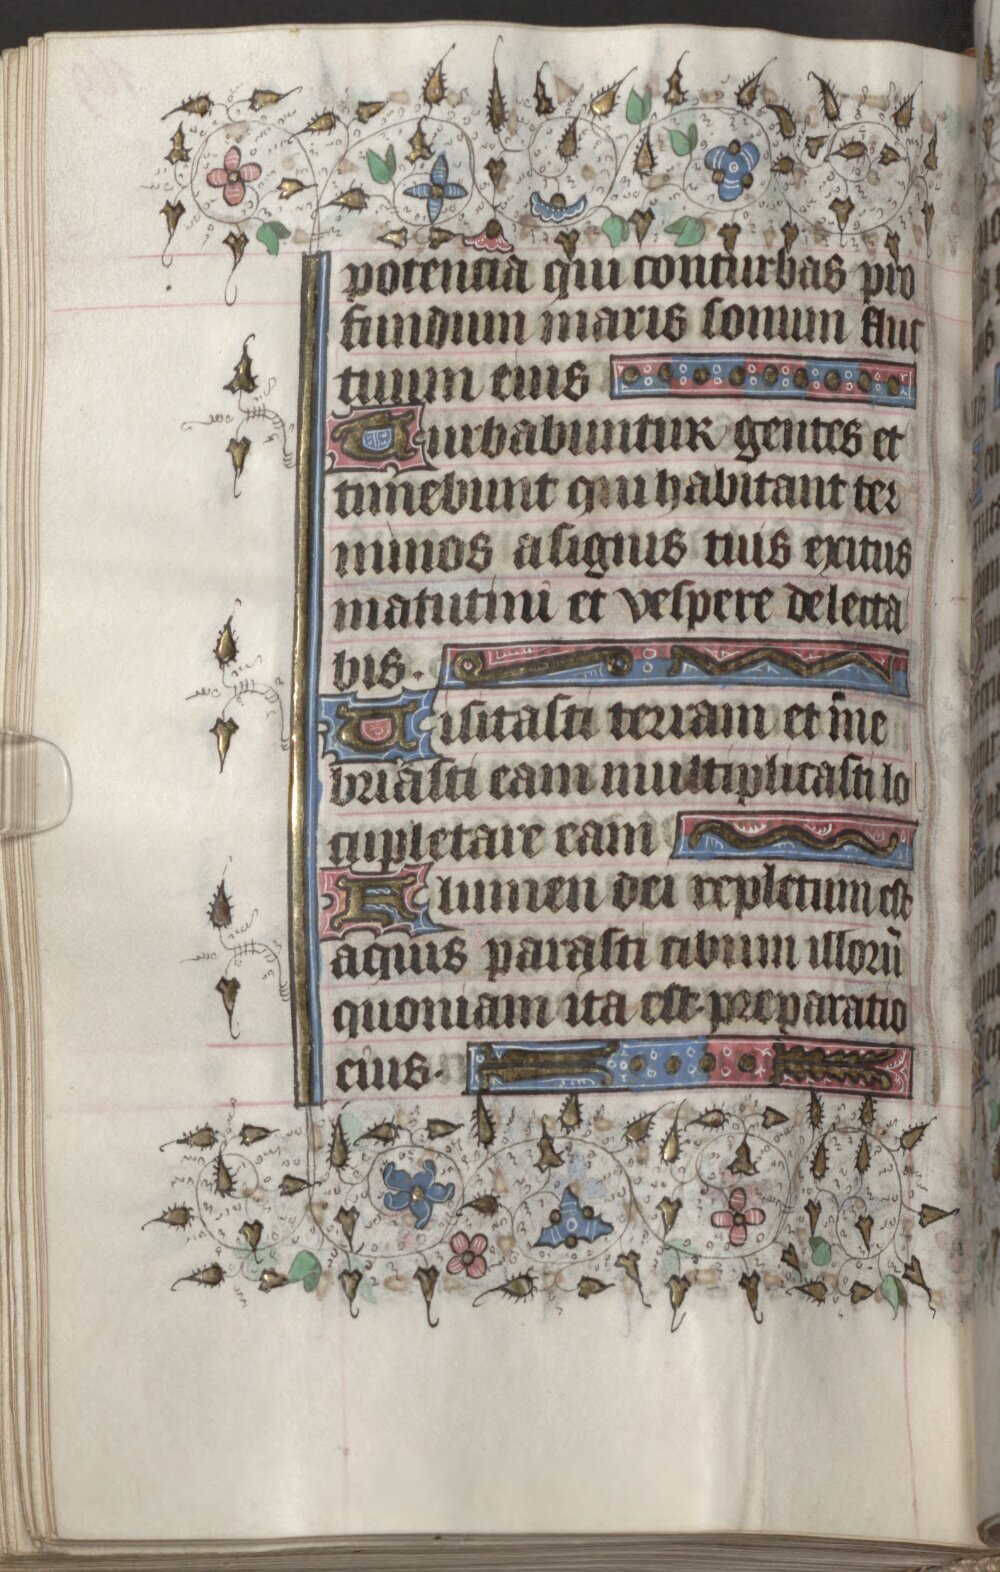 potencia qui conturbas pro
fundum maris sonum fluc
tuum eius
Turbabuntur gentes et
timebunt qui habitant ter
minos a signis tuis exitus
matutini et vespere delecta
bis.
Visitasti terram et ine
briasti eam multiplicasti lo
cupletare eam
Flumen dei repletum est
aquis parasti cibum illorū
quoniam ita est preparatio
eius.